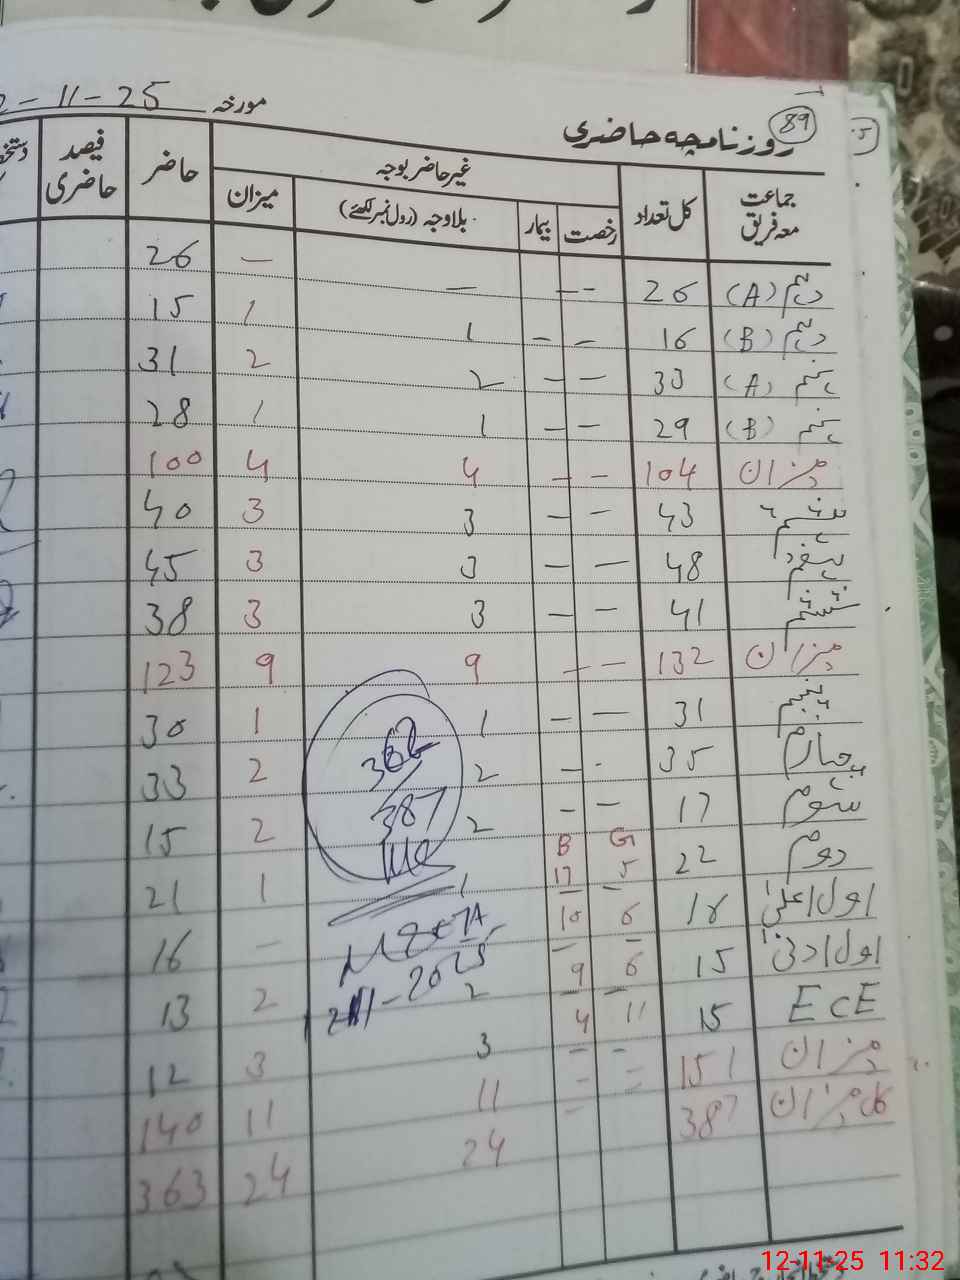 89
روزنامچہ حاضری
مورخہ 2-11-25
جماعت معہ فریق | کل تعداد | غیر حاضر بوجہ | حاضر | فیصد حاضری
رخصت | بیمار | بلاوجہ (رول نمبر لکھئے) | میزان
دہم (A) | 26 | – | – | – | – | 26
دہم (B) | 16 | – | – | 1 | 1 | 15
نہم (A) | 33 | – | – | 2 | 2 | 31
نہم (B) | 29 | – | – | 1 | 1 | 28
میزان | 104 | – | – | 4 | 4 | 100
ہشتم | 43 | – | – | 3 | 3 | 40
ہفتم | 48 | – | – | 3 | 3 | 45
ششم | 41 | – | – | 3 | 3 | 38
میزان | 132 | – | – | 9 | 9 | 123
پنجم | 31 | – | – | 1 | 1 | 30
چہارم | 35 | – | – | 2 | 2 | 33
سوم | 17 | – | – | 2 | 2 | 15
G | B
دوم | 22 | 5 | 17 | 1 | 1 | 21
اول اعلیٰ | 16 | 6 | 10 | – | 16
اول ادنیٰ | 15 | 6 | 9 | 2 | 2 | 13
ECE | 15 | 11 | 4 | 3 | 3 | 12
میزان | 151 | – | – | 11 | 11 | 140
کل میزان | 387 | – | – | 24 | 24 | 363
362/387
12-11-25 11:32